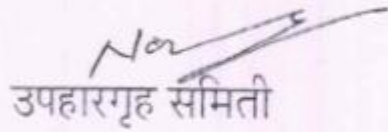 उपहारगृह समिती